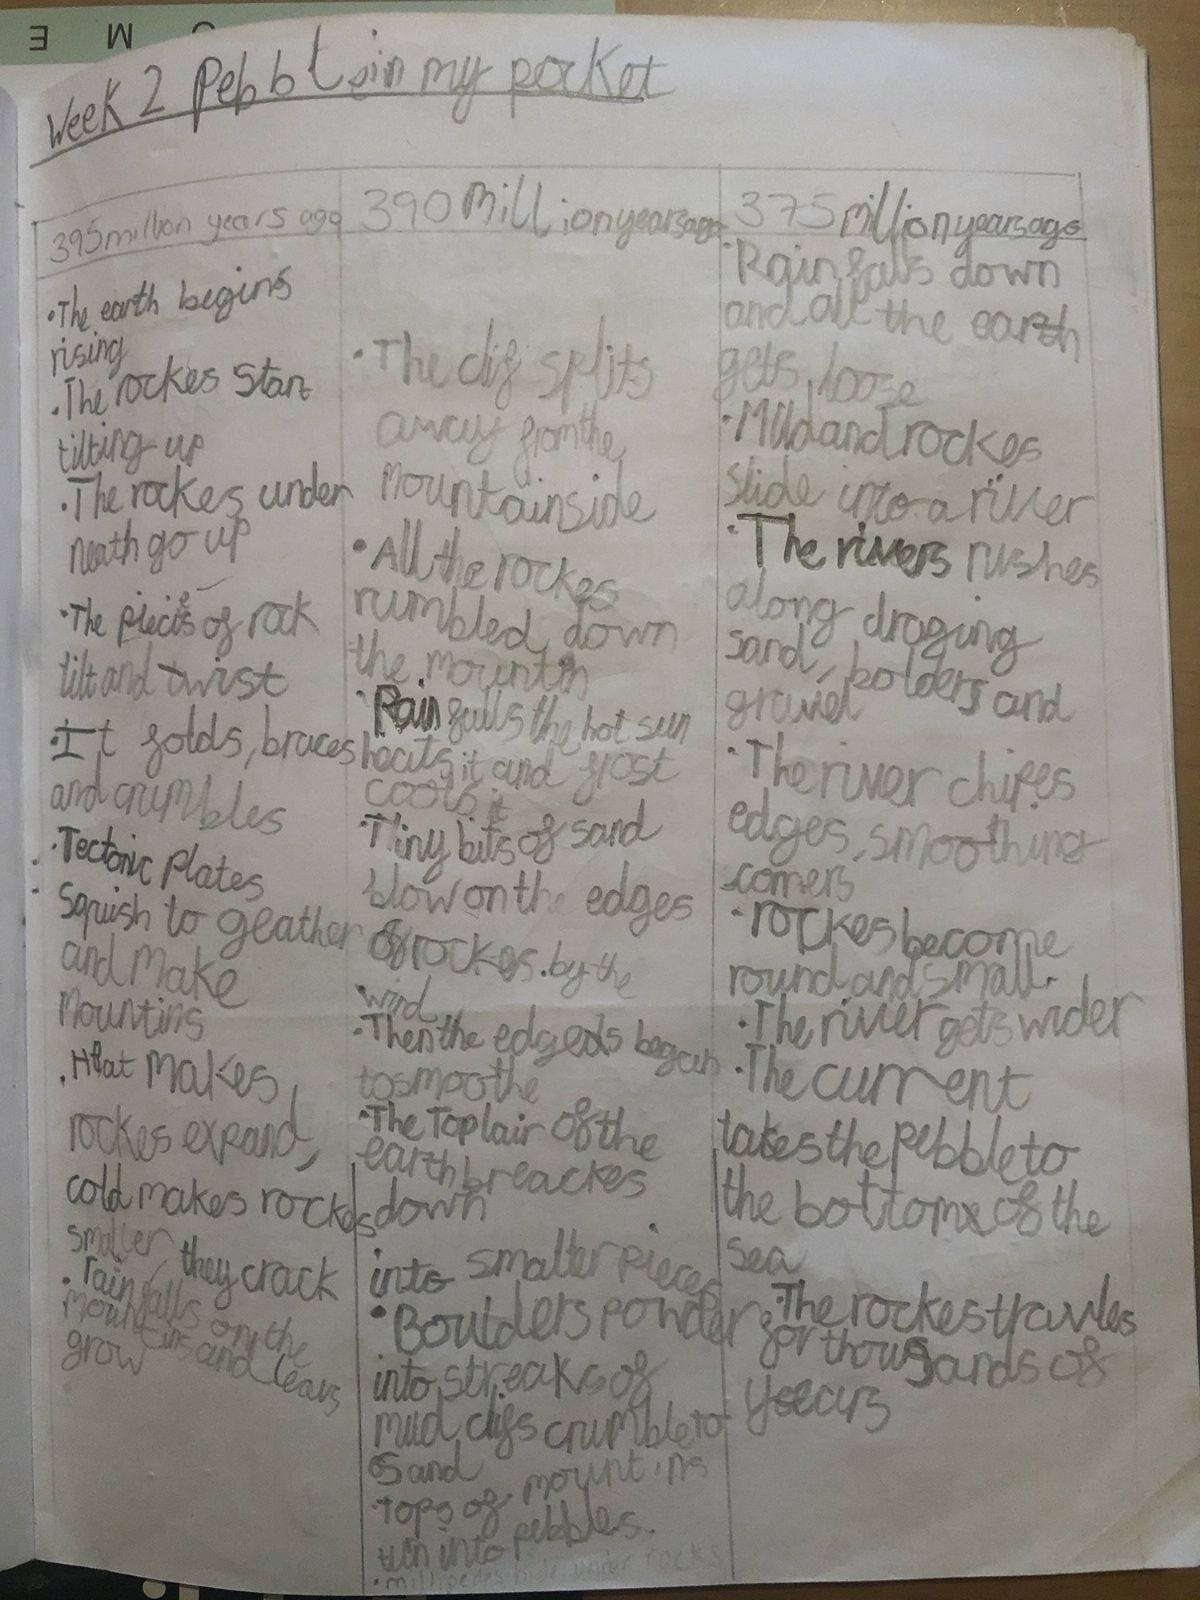 E M
Week 2 Pebble in my pocket
395 million years ago
•The earth begins
rising
•The rockes start
tilting up
•The rockes under
neath go up
•The pieces of rock
tilt and twist
•It folds, braces
and crumbles
•Tectonic plates
squish to geather
and make
mountins
•Heat makes
rockes expand,
cold makes rockes
smaller they crack
•rain falls on the
mountins and leavs
grow
390 million years ago
•The clif splits
away from the
mountainside
•All the rockes
rumbled down
the mountin
•Rain falls the hot sun
heats it and frost
cools it
•Tiny bits of sand
blow on the edges
of rockes. by the
wind
•Then the edgeds began
to smoothe
•The Top lair of the
earth breackes
down
into smaller pieces
•Boulders powder
into streaks of
mud, clifs crumble to
sand
tops of mountins
turn into pebbles.
•millipedes hide under rocks
375 million years ago
•Rain falls down
and all the earth
gets loose
•Mud and rockes
slide into a river
•The rivers rushes
along draging
sand, bolders and
gravel
•The river chipes
edges, smoothing
corners
•rockes become
round and small.
•The river gets wider
•The current
takes the pebble to
the bottome of the
sea
•The rockes travles
for thousands of
years